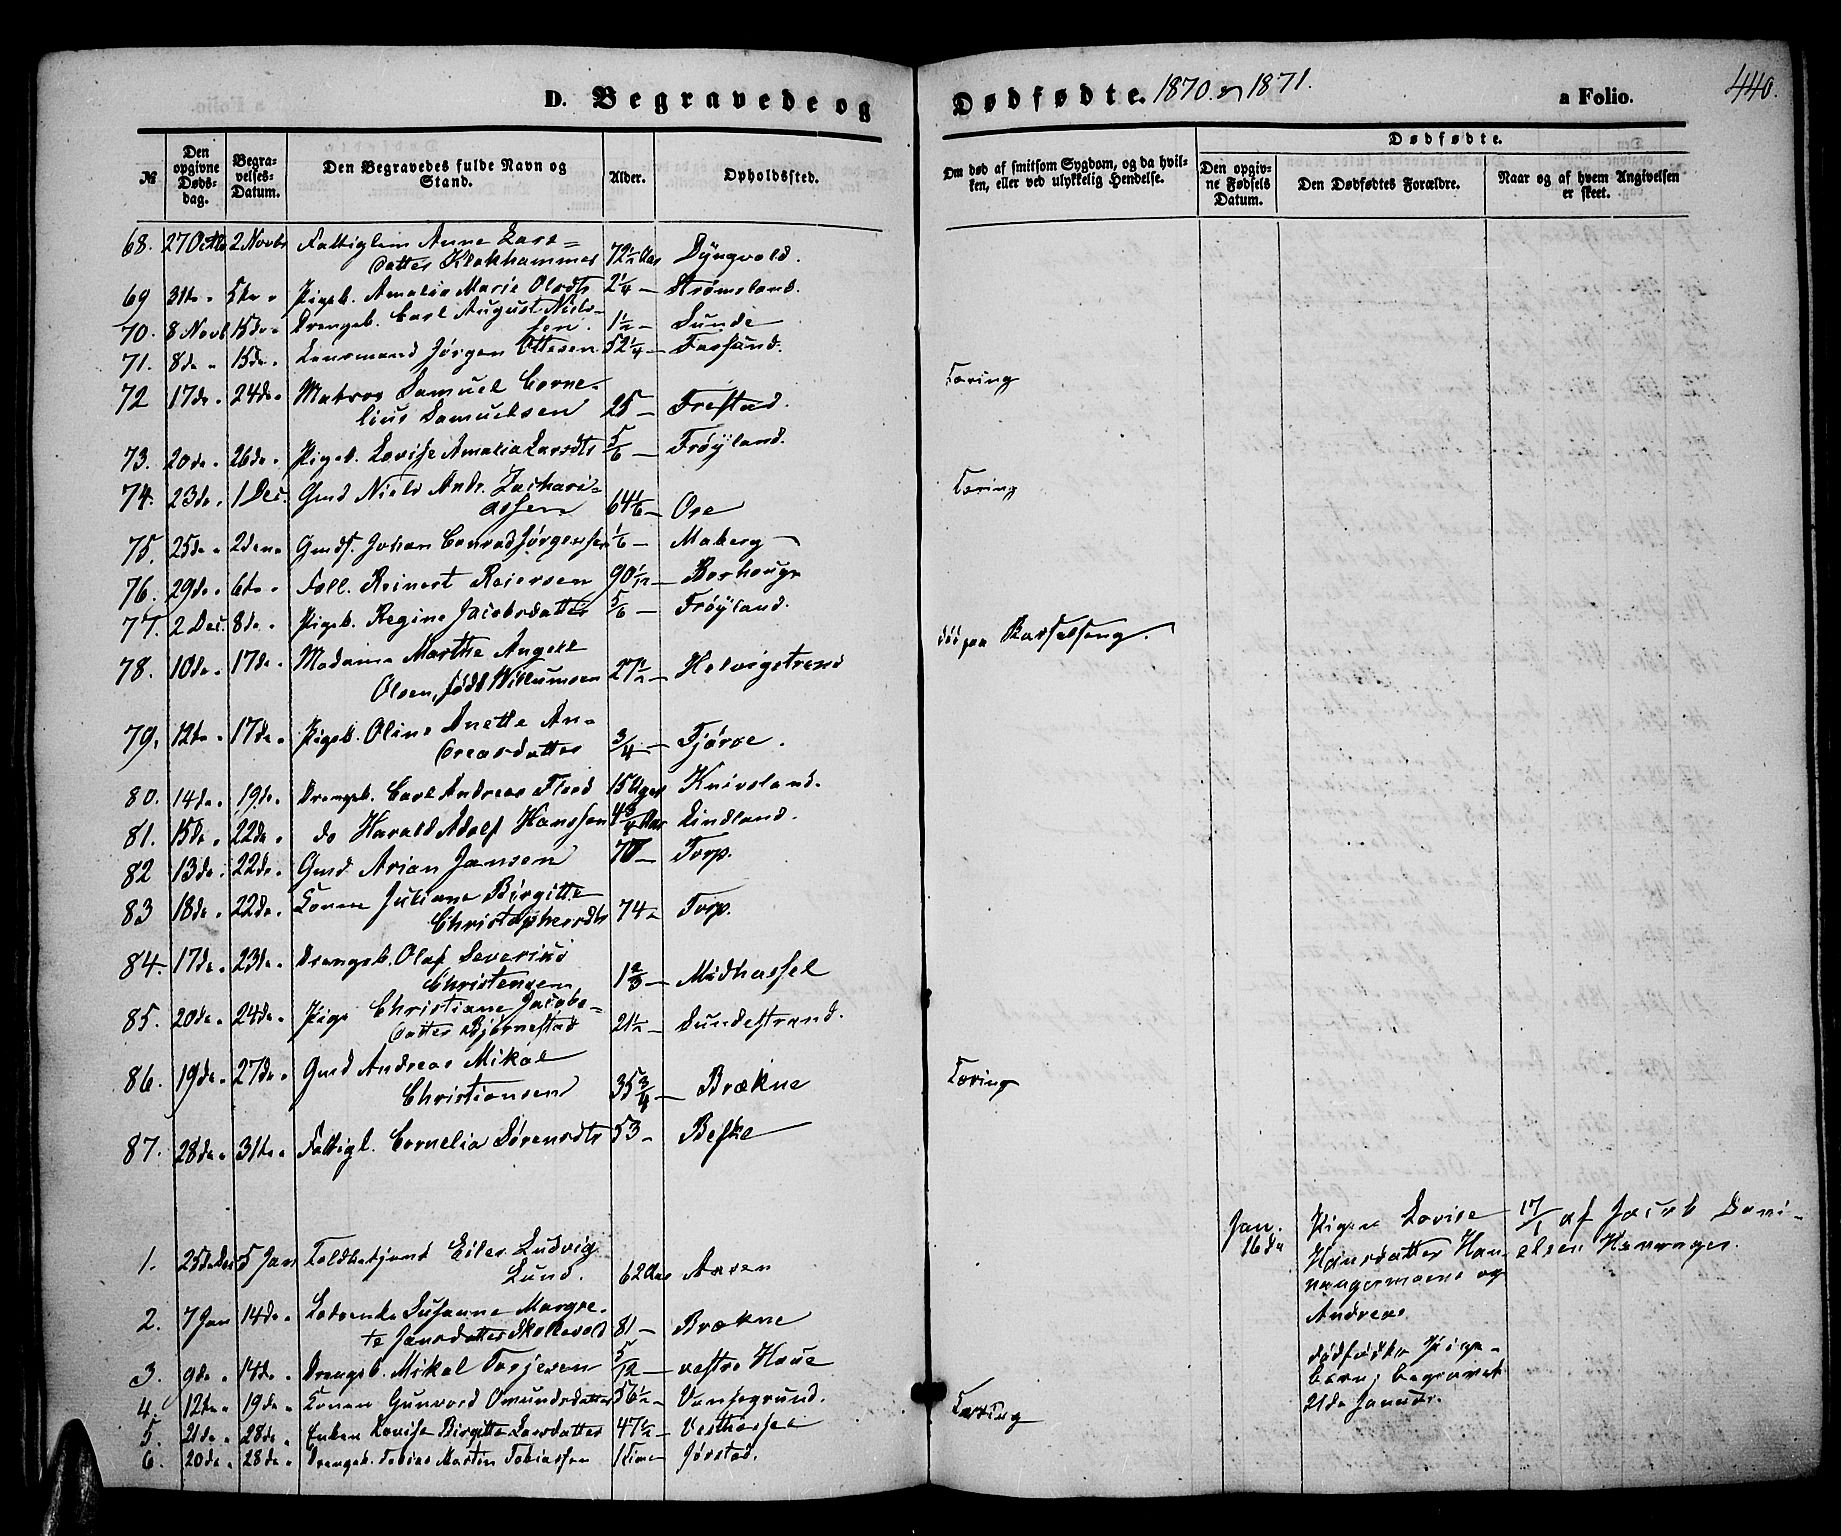 D. Begravede og Dødfødte. 1870 og 1871. a Folio. 440.
№ Den opgivne Dødsdag. Begravelses-Datum. Den Begravedes fulde Navn og Stand. Alder. Opholdssted. Om død af smitsom Sygdom, og da hvilken, eller ved ulykkelig Hendelse. Dødfødte.
Den opgivne Fødsels Datum. Den Dødfødtes Forældre. Naar og af hvem Angivelsen er skeet.
68. 27 Octbr 2 Novbr Fattiglem Anne Lars=
datter Klokhammer 72 1/2 Aar Dyngvold.
69 31te " 5te " Pigeb. Amalia Marie Olsdtr 2 1/4 — Strømsland.
70. 8 Novb 15de " Drengeb. Carl August Niel-
sen. 1 1/2 — Lunde
71. 8de " 15de " Lensmand Jørgen Ottesen 52 1/4 — Farsund.
72 17de " 24de " Matros Samuel Corne- Tæring
lius Samuelsen 25 — Frestad.
73. 20de " 26de " Pigeb. Lovise Amalia Larsdtr 5/6 — Frøyland.
74. 23de " 1 Dec. Gmd Niels Andr. Zachari= Tæring
assen 64 1/6 — Ore
75. 25de " 2den " Gmds. Johan Conrad Jørgensen 1/6 — Maberg
76. 29de " 6te " Foll. Reinert Reiersen 90 1/12 — Borhoug
77. 2 Dec. 8de " Pigeb. Regine Jacobsdatter 5/6 — Frøyland.
78. 10de " 17de " Madame Marthe Angell død paa Barselseng.
Olsen, født Willumsen 27 1/2 — Helvigstrand
79. 12te " 17de " Pigeb. Oline Anette An-
dreasdatter 3/4 — Tjørve.
80. 14de " 19de " Drengeb. Carl Andreas Flood 15 Uger Knivsland.
81. 15de " 22de " do Harald Adolf Hanssen 4 3/4 Aar Lindland.
82 13de " 22de " Gmd. Arian Jansen 70 — Torp.
83 18de " 22de " Konen Juliane Birgitte
Christophersdtr 74 — Torp.
84. 17de " 23de " Drengeb. Olaf Severin
Christensen 1 2/3 — Midhassel
85. 20de " 24de " Pige Christiane Jacobs-
datter Bjørnestad 21 1/2 — Lundestrand.
86. 19de " 27de " Gmd Andreas Mikal Tæring
Christiansen 35 3/4 — Brækne
87. 28de " 31te " Fattigl. Cornelia Sørensdtr 53 — Beske
1. 25de Dec 5 Jan Toldbetjent Eiler Ludvig
Lund. 62 Aar Aasen
Jan. 16de Pigen Lovise 17/1 af Jacob Dani-
Hansdatter Han- elsen Hananger.
nangermoene og
Andreas
2. 7 Jan 14de " Lodsenke Susanne Margre-
te Jansdatter Skollevold 81 — Brækne
dødfødte Pige-
barn; begravet
21de Januar.
3. 9de " 14de " Drengeb. Mikal Torjesen 5/12 — vestre Haue
4. 12te " 19de " Konen Gunvord Omundsdatter 56 1/2 — Vansegrund. Tæring
5. 21de " 28de " Enken Lovise Birgitte Larsdatter 47 1/2 — Vesthassel
6. 20de " 28de " Drengeb. Tobias Martin Tobiassen 1 Time Jørstad.